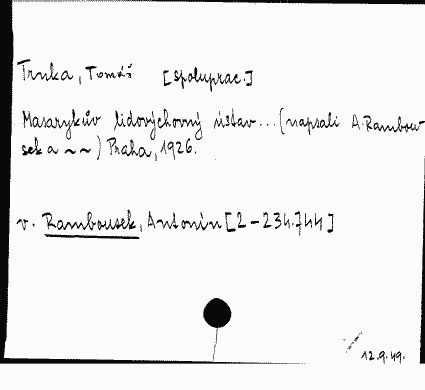 Trnka, Tomáš [spoluprac.]
Masarykův lidovýchovný ústav... (napsali A. Rambou-
sek a ~ ~) Praha, 1926.
v. Rambousek, Antonín [2-234.744]
12.9.49.